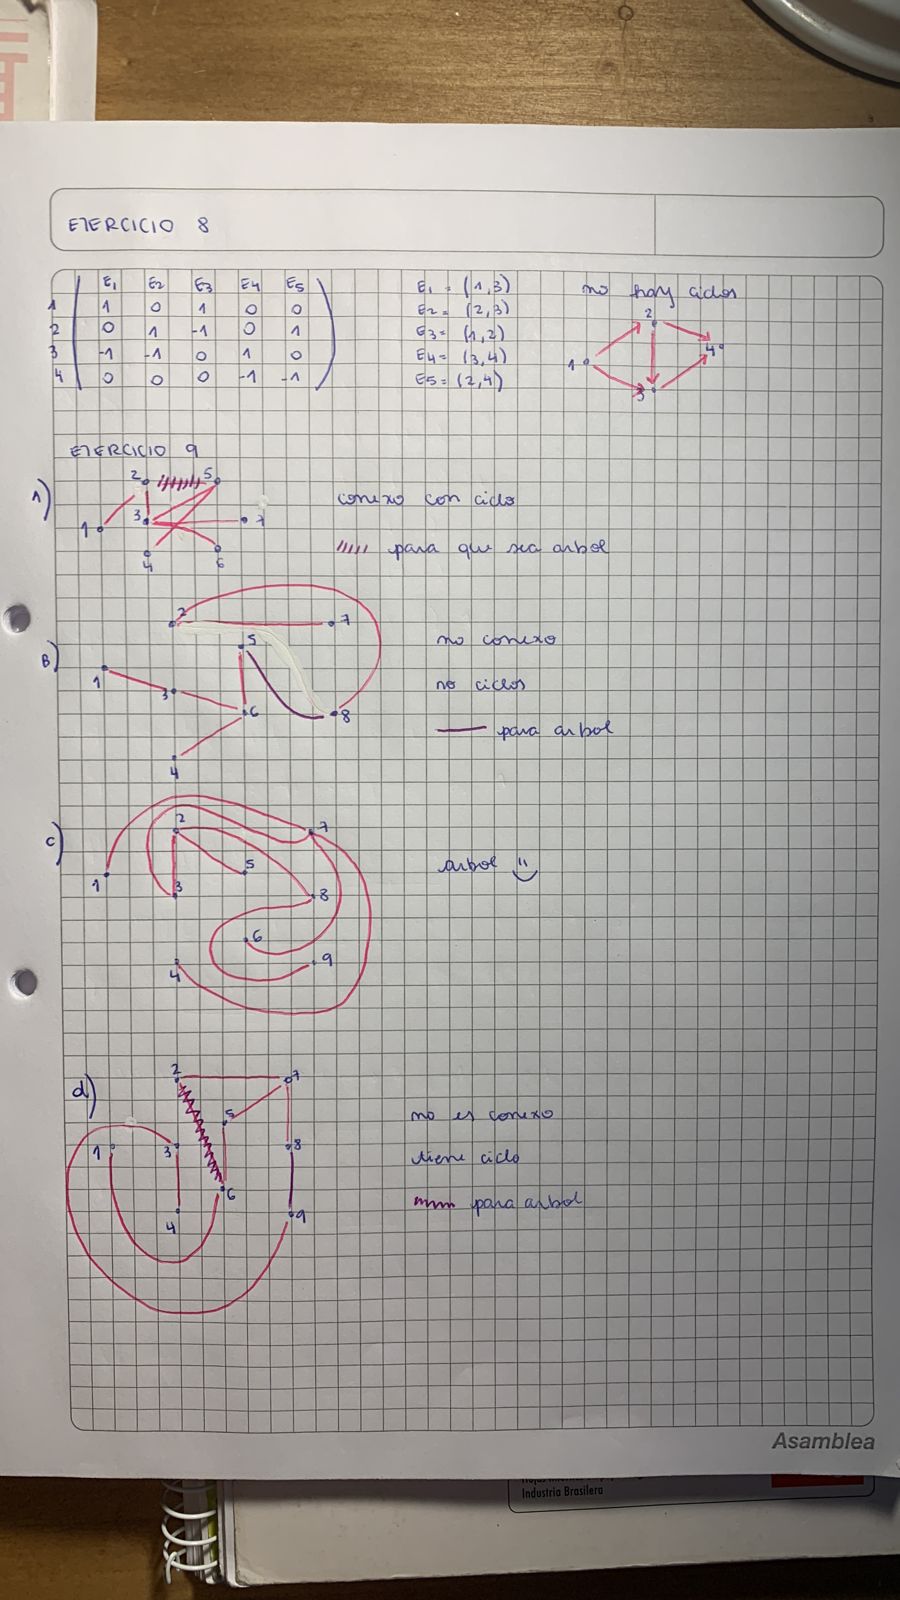 EJERCICIO 8
E1 E2 E3 E4 E5
1 1 0 1 0 0
2 0 1 -1 0 1
3 -1 -1 0 1 0
4 0 0 0 -1 -1
E1 = (1,3)
E2 = (2,3)
E3 = (1,2)
E4 = (3,4)
E5 = (2,4)
no hay ciclos
2
1
4
3
EJERCICIO 9
A)
2 5
1 3 7
4 6
conexo con ciclo
para que sea arbol
B)
2 7
5
1 3
6 8
4
no conexo
no ciclos
para arbol
c)
2 7
1 3 5
8
6
4 9
arbol
d)
2 7
5
1 3 8
6
4 9
no es conexo
tiene ciclo
para arbol
Asamblea
Industria Brasilera